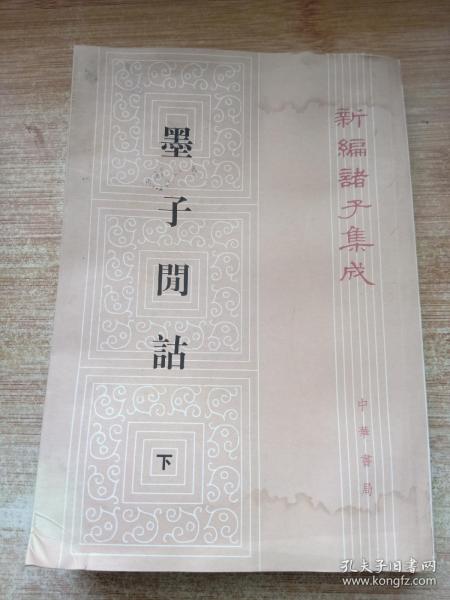 新編諸子集成
墨子閒詁
下
中華書局
孔夫子旧书网
www.kongfz.com